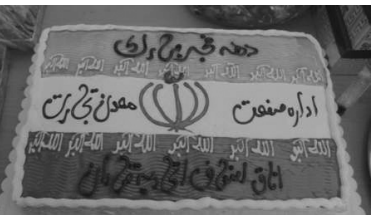 دهه فجر مبارک
الله اکبر الله اکبر الله اکبر الله اکبر الله اکبر الله اکبر
اداره صنعت معدن تجارت
الله اکبر الله اکبر الله اکبر الله اکبر الله اکبر
اتاق اصناف